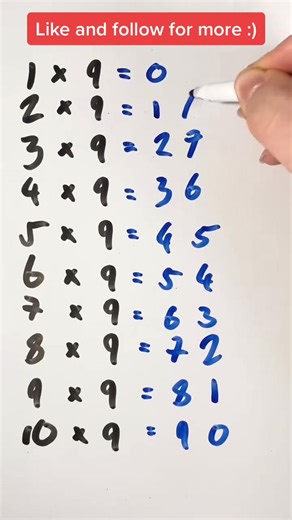 Like and follow for more :)
1 × 9 = 0
2 × 9 = 1 1
3 × 9 = 2 7
4 × 9 = 3 6
5 × 9 = 4 5
6 × 9 = 5 4
7 × 9 = 6 3
8 × 9 = 7 2
9 × 9 = 8 1
10 × 9 = 9 0